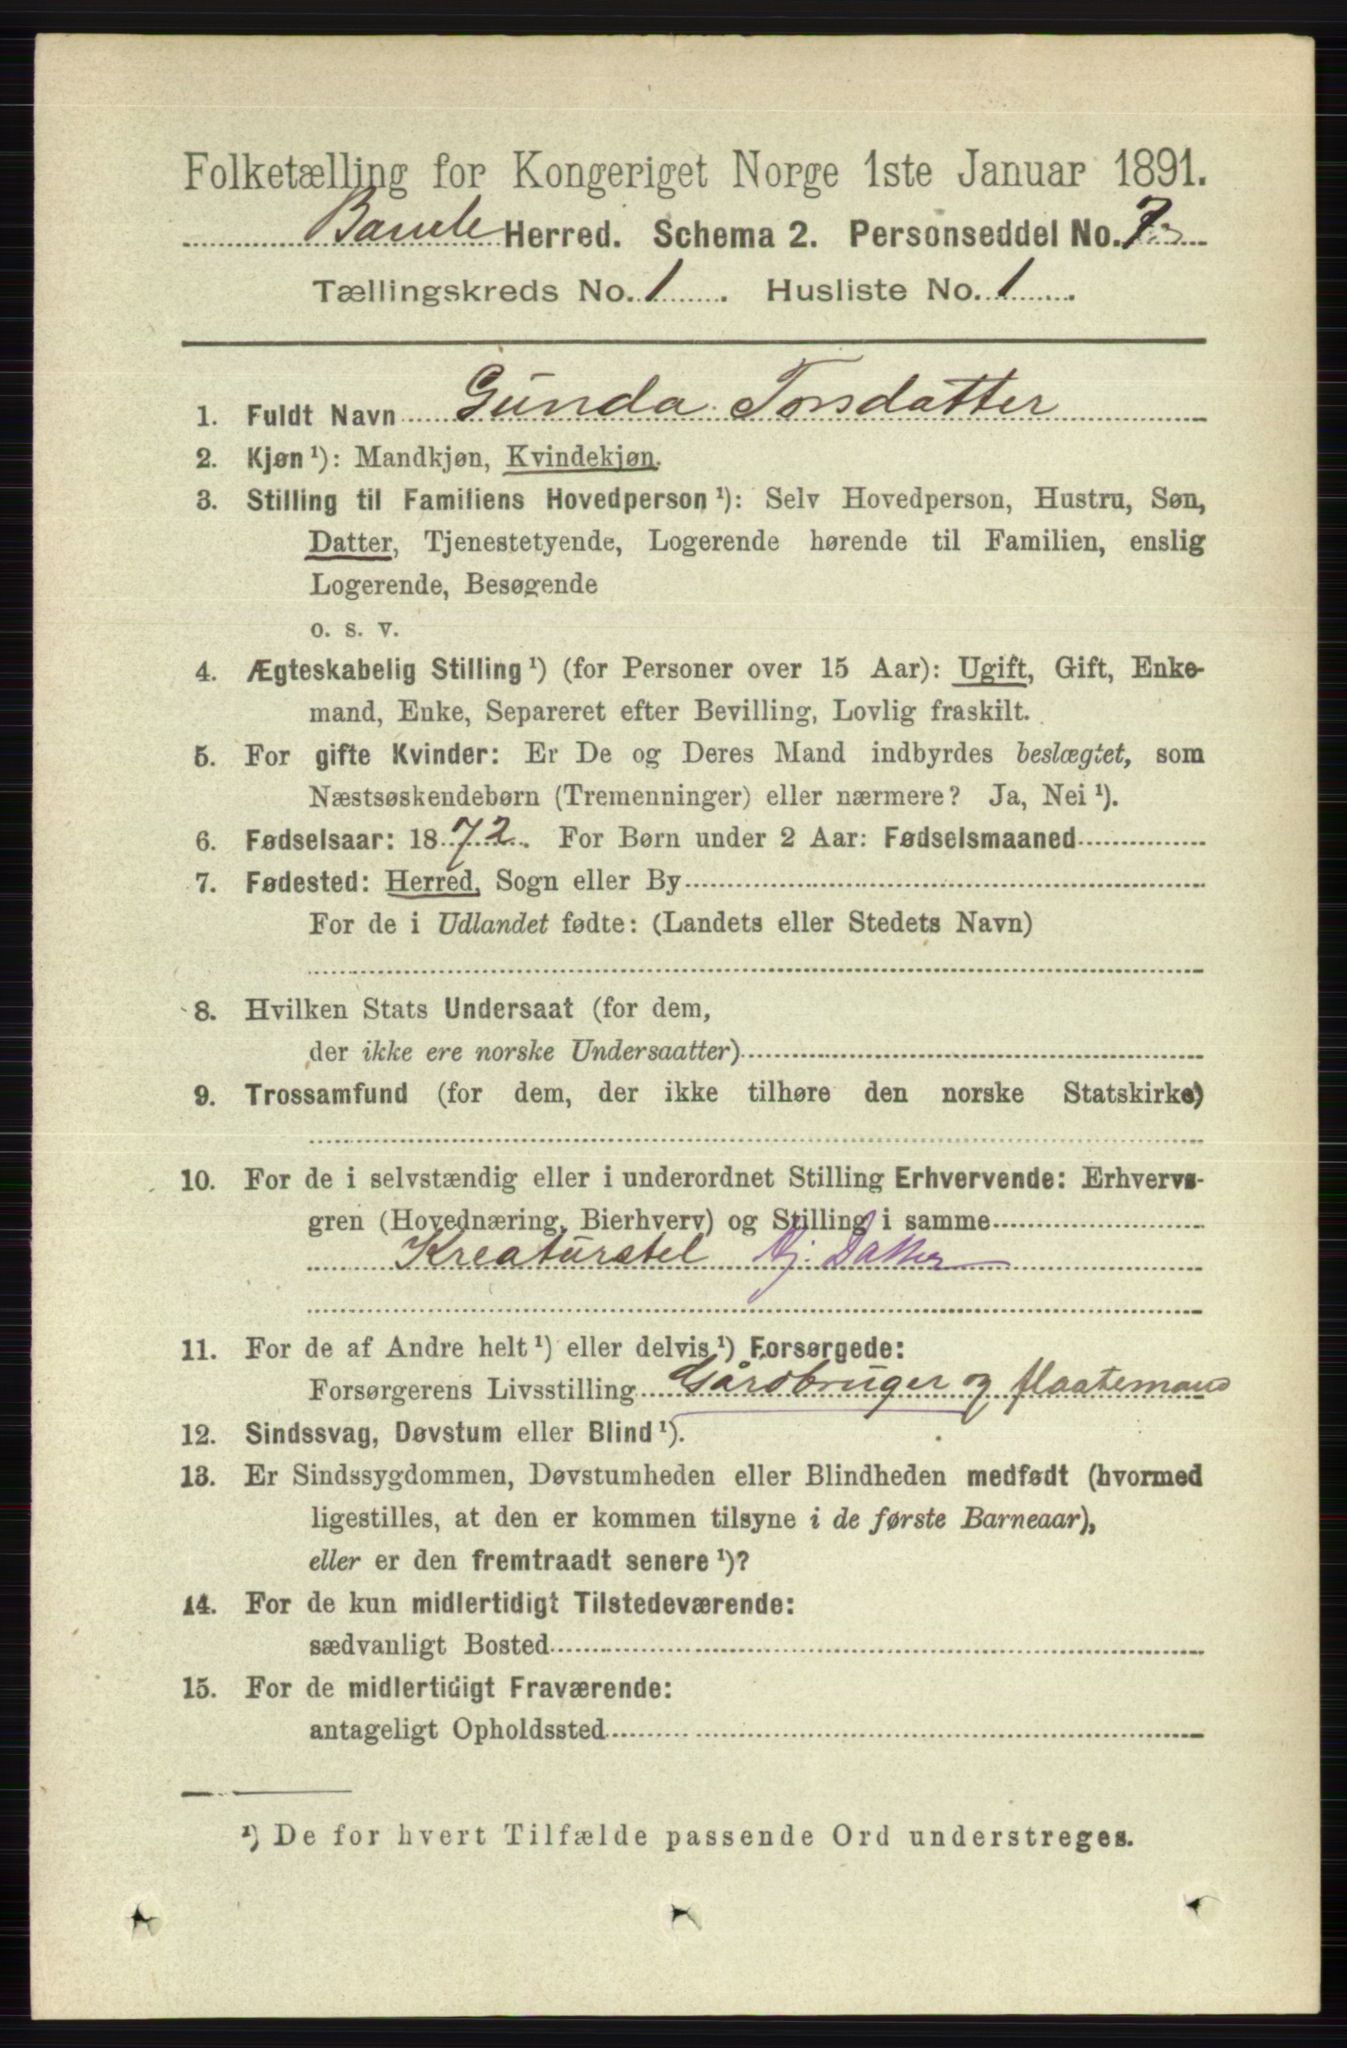 Folketælling for Kongeriget Norge 1ste Januar 1891.
Bamle Herred. Schema 2. Personseddel No. 7
Tællingskreds No. 1. Husliste No. 1.
1. Fuldt Navn Gunda Torsdatter
2. Kjøn ¹): Mandkjøn, Kvindekjøn.
3. Stilling til Familiens Hovedperson ¹): Selv Hovedperson, Hustru, Søn,
Datter, Tjenestetyende, Logerende hørende til Familien, enslig
Logerende, Besøgende
o. s. v.
4. Ægteskabelig Stilling ¹) (for Personer over 15 Aar): Ugift, Gift, Enke-
mand, Enke, Separeret efter Bevilling, Lovlig fraskilt.
5. For gifte Kvinder: Er De og Deres Mand indbyrdes beslægtet, som
Næstsøskendebørn (Tremenninger) eller nærmere? Ja, Nei ¹).
6. Fødselsaar: 1872. For Børn under 2 Aar: Fødselsmaaned
7. Fødested: Herred, Sogn eller By
For de i Udlandet fødte: (Landets eller Stedets Navn)
8. Hvilken Stats Undersaat (for dem,
der ikke ere norske Undersaatter)
9. Trossamfund (for dem, der ikke tilhøre den norske Statskirke)
10. For de i selvstændig eller i underordnet Stilling Erhvervende: Erhvervs-
gren (Hovednæring, Bierhverv) og Stilling i samme
Kreaturstel Gj. Datter
11. For de af Andre helt ¹) eller delvis ¹) Forsørgede:
Forsørgerens Livsstilling Gårdbruger og flaatemand
12. Sindssvag, Døvstum eller Blind ¹).
13. Er Sindssygdommen, Døvstumheden eller Blindheden medfødt (hvormed
ligestilles, at den er kommen tilsyne i de første Barneaar),
eller er den fremtraadt senere ¹)?
14. For de kun midlertidigt Tilstedeværende:
sædvanligt Bosted
15. For de midlertidigt Fraværende:
antageligt Opholdssted
¹) De for hvert Tilfælde passende Ord understreges.